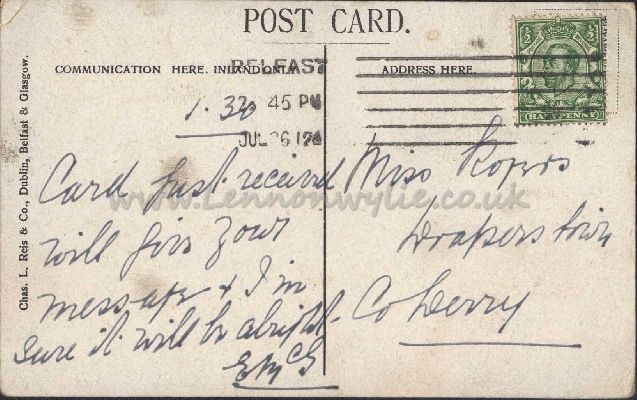 POST CARD.
COMMUNICATION HERE. INLAND ONLY
ADDRESS HERE.
BELFAST
45 PM
JUL 26 12
1.30
Card just received
will give your
message & I'm
sure it will be alright.
EMcG
Miss Rogers
Draperstown
Co Derry
HALFPENNY
Chas. L. Reis & Co., Dublin, Belfast & Glasgow.
www.Lennonwylie.co.uk